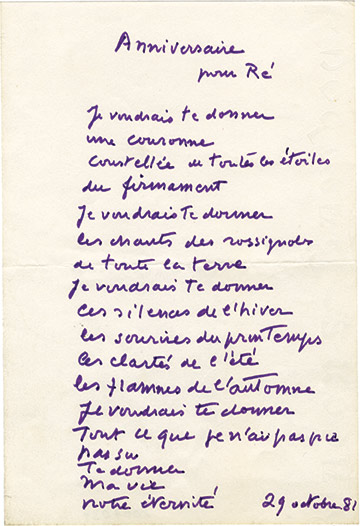 Anniversaire
pour Ré
Je voudrais te donner
une couronne
constellée de toutes les étoiles
du firmament
Je voudrais te donner
les chants des rossignols
de toute la terre
Je voudrais te donner
les silences de l'hiver
les sourires du printemps
les clartés de l'été
les flammes de l'automne
Je voudrais te donner
Tout ce que je n'ai pas pu
pas su
Te donner
Ma vie
notre éternité
29 octobre 81